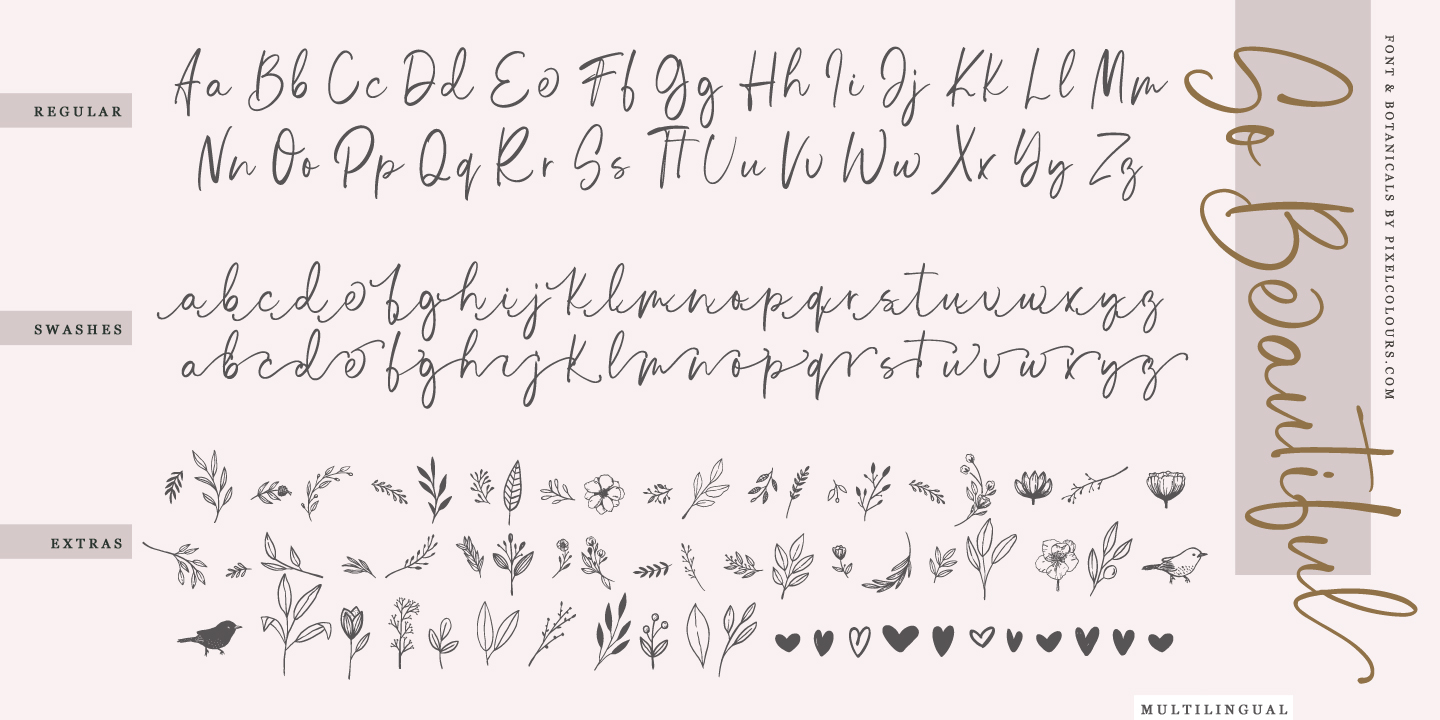 REGULAR
Aa Bb Cc Dd Ee Ff Gg Hh Ii Jj Kk Ll Mm
Nn Oo Pp Qq Rr Ss Tt Uu Vv Ww Xx Yy Zz
SWASHES
a b c d e f g h i j k l m n o p q r s t u v w x y z
a b c d e f g h i j k l m n o p q r s t u v w x y z
EXTRAS
So Beautiful
FONT & BOTANICALS BY PIXELCOLOURS.COM
MULTILINGUAL